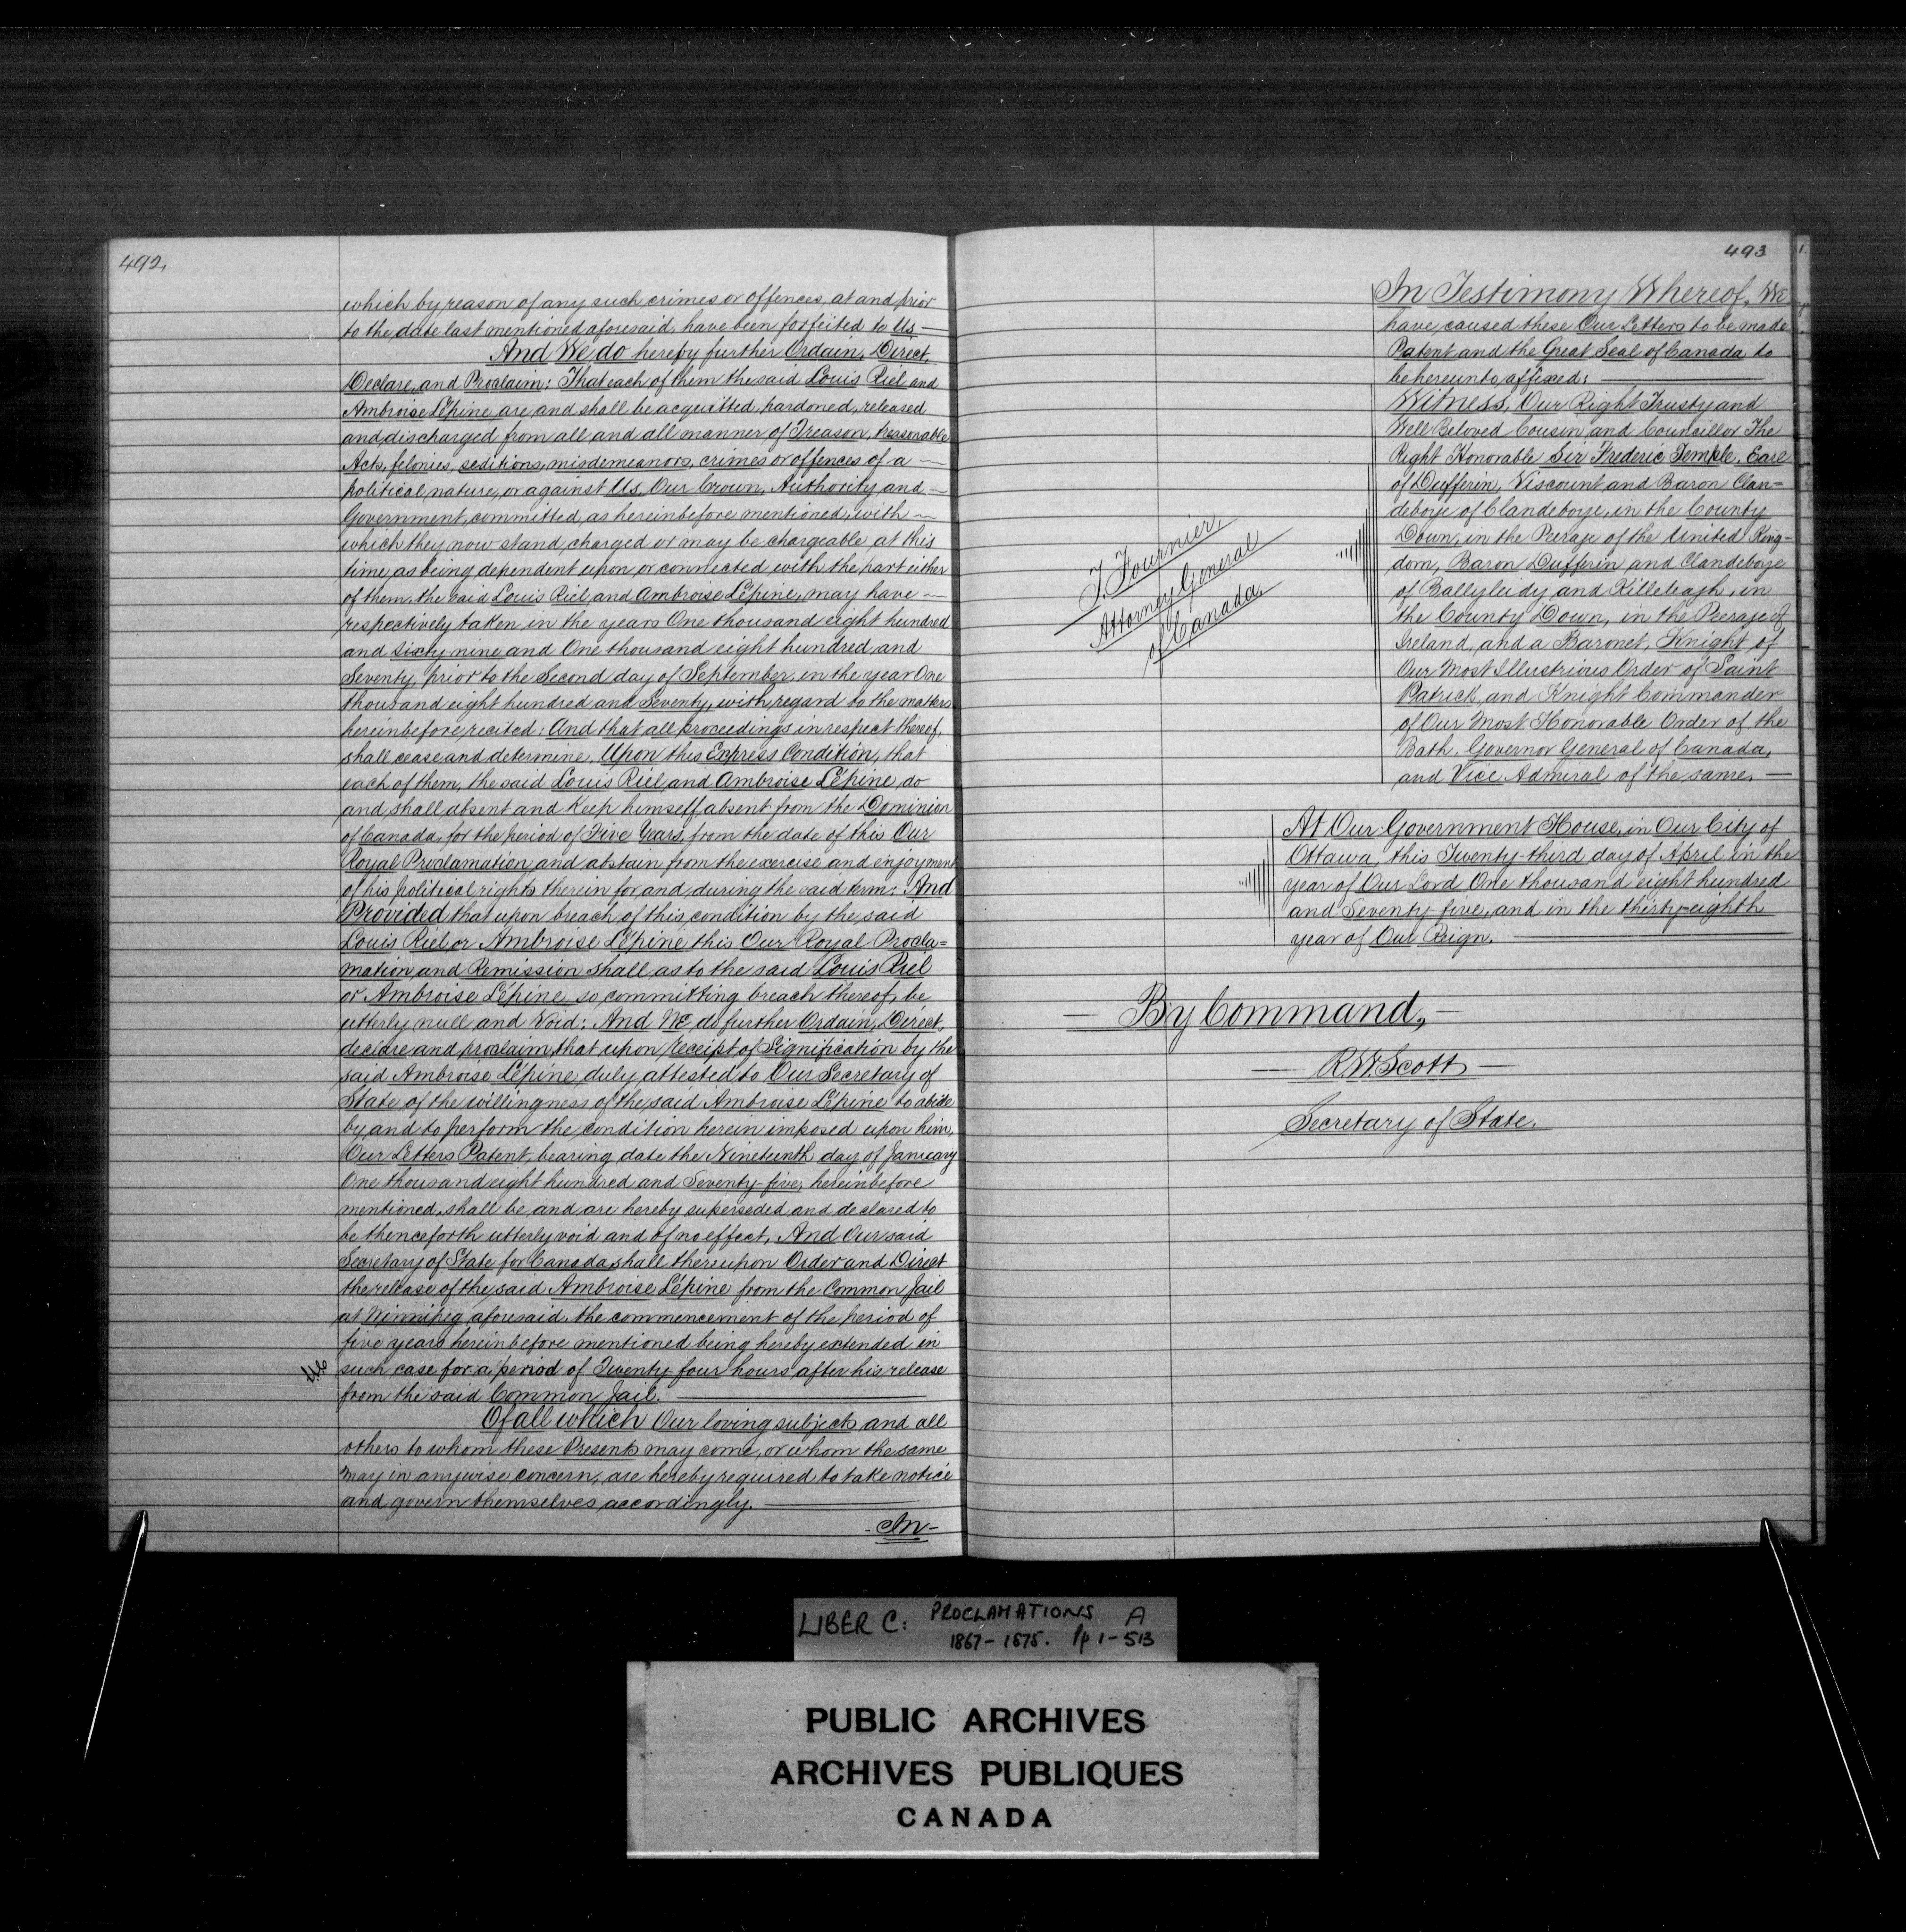 492,
which by reason of any such crimes or offences, at and prior
to the date last mentioned aforesaid, have been forfeited to Us —
And We do hereby further Ordain, Direct,
Declare, and Proclaim: That each of them the said Louis Riel and
Ambroise Lépine are and shall be acquitted, pardoned, released
and discharged from all and all manner of Treason, treasonable
Acts, felonies, seditions, misdemeanors, crimes or offences of a —
political nature, or against Us, Our Crown, Authority and —
Government, committed, as hereinbefore mentioned, with —
which they now stand charged or may be chargeable at this
time, as being dependent upon or connected with the part either
of them, the said Louis Riel and Ambroise Lépine, may have —
respectively taken in the years One thousand eight hundred
and sixty nine and One thousand eight hundred and
Seventy, prior to the Second day of September, in the year One
thousand eight hundred and Seventy, with regard to the matters
hereinbefore recited: And that all proceedings in respect thereof,
shall cease and determine, Upon this Express Condition, that
each of them, the said Louis Riel and Ambroise Lépine, do
and shall absent and keep himself absent from the Dominion
of Canada, for the period of Five Years, from the date of this Our
Royal Proclamation and abstain from the exercise and enjoyment
of his political rights therein for and during the said term: And
Provided that upon breach of this condition by the said
Louis Riel or Ambroise Lépine this Our Royal Procla=
mation and Remission shall as to the said Louis Riel
or Ambroise Lépine so committing breach thereof, be
utterly null and Void: And We do further Ordain, Direct,
declare and proclaim, that upon receipt of Signification by the
said Ambroise Lépine duly attested to Our Secretary of
State of the willingness of the said Ambroise Lépine to abide
by and to perform the condition herein imposed upon him,
Our Letters Patent, bearing date the Nineteenth day of January
One thousand eight hundred and Seventy-five, hereinbefore
mentioned, shall be and are hereby superseded and declared to
be thenceforth utterly void and of no effect, And Our said
Secretary of State for Canada shall thereupon Order and Direct
the release of the said Ambroise Lépine from the Common Jail
at Winnipeg aforesaid, the commencement of the period of
five years hereinbefore mentioned being hereby extended in
such case for a period of Twenty four hours after his release
from the said Common Jail. —
Of all which Our loving subjects and all
others to whom these Presents may come, or whom the same
may in anywise concern, are hereby required to take notice
and govern themselves accordingly. —
- In -
493
In Testimony Whereof, We
have caused these Our Letters to be made
Patent and the Great Seal of Canada to
be hereunto affixed: —
Witness, Our Right Trusty and
Well Beloved Cousin and Councillor The
Right Honorable Sir Frederic Temple, Earl
of Dufferin, Viscount and Baron Clan=
deboye of Clandeboye, in the County
Down, in the Peerage of the United King-
dom, Baron Dufferin and Clandeboye
of Ballyleidy and Killeleagh, in
the County Down, in the Peerage of
Ireland, and a Baronet, Knight of
Our Most Illustrious Order of Saint
Patrick, and Knight Commander
of Our Most Honorable Order of the
Bath, Governor General of Canada,
and Vice Admiral of the same. —
T. Fournier,
Attorney General
of Canada,
At Our Government House, in Our City of
Ottawa, this Twenty-third day of April in the
year of Our Lord One thousand eight hundred
and Seventy five, and in the thirty-eighth
year of Our Reign. —
— By Command, —
— R. W. Scott —
Secretary of State.
LIBER C: PROCLAMATIONS A
1867-1875. Pp 1-513
PUBLIC ARCHIVES
ARCHIVES PUBLIQUES
CANADA